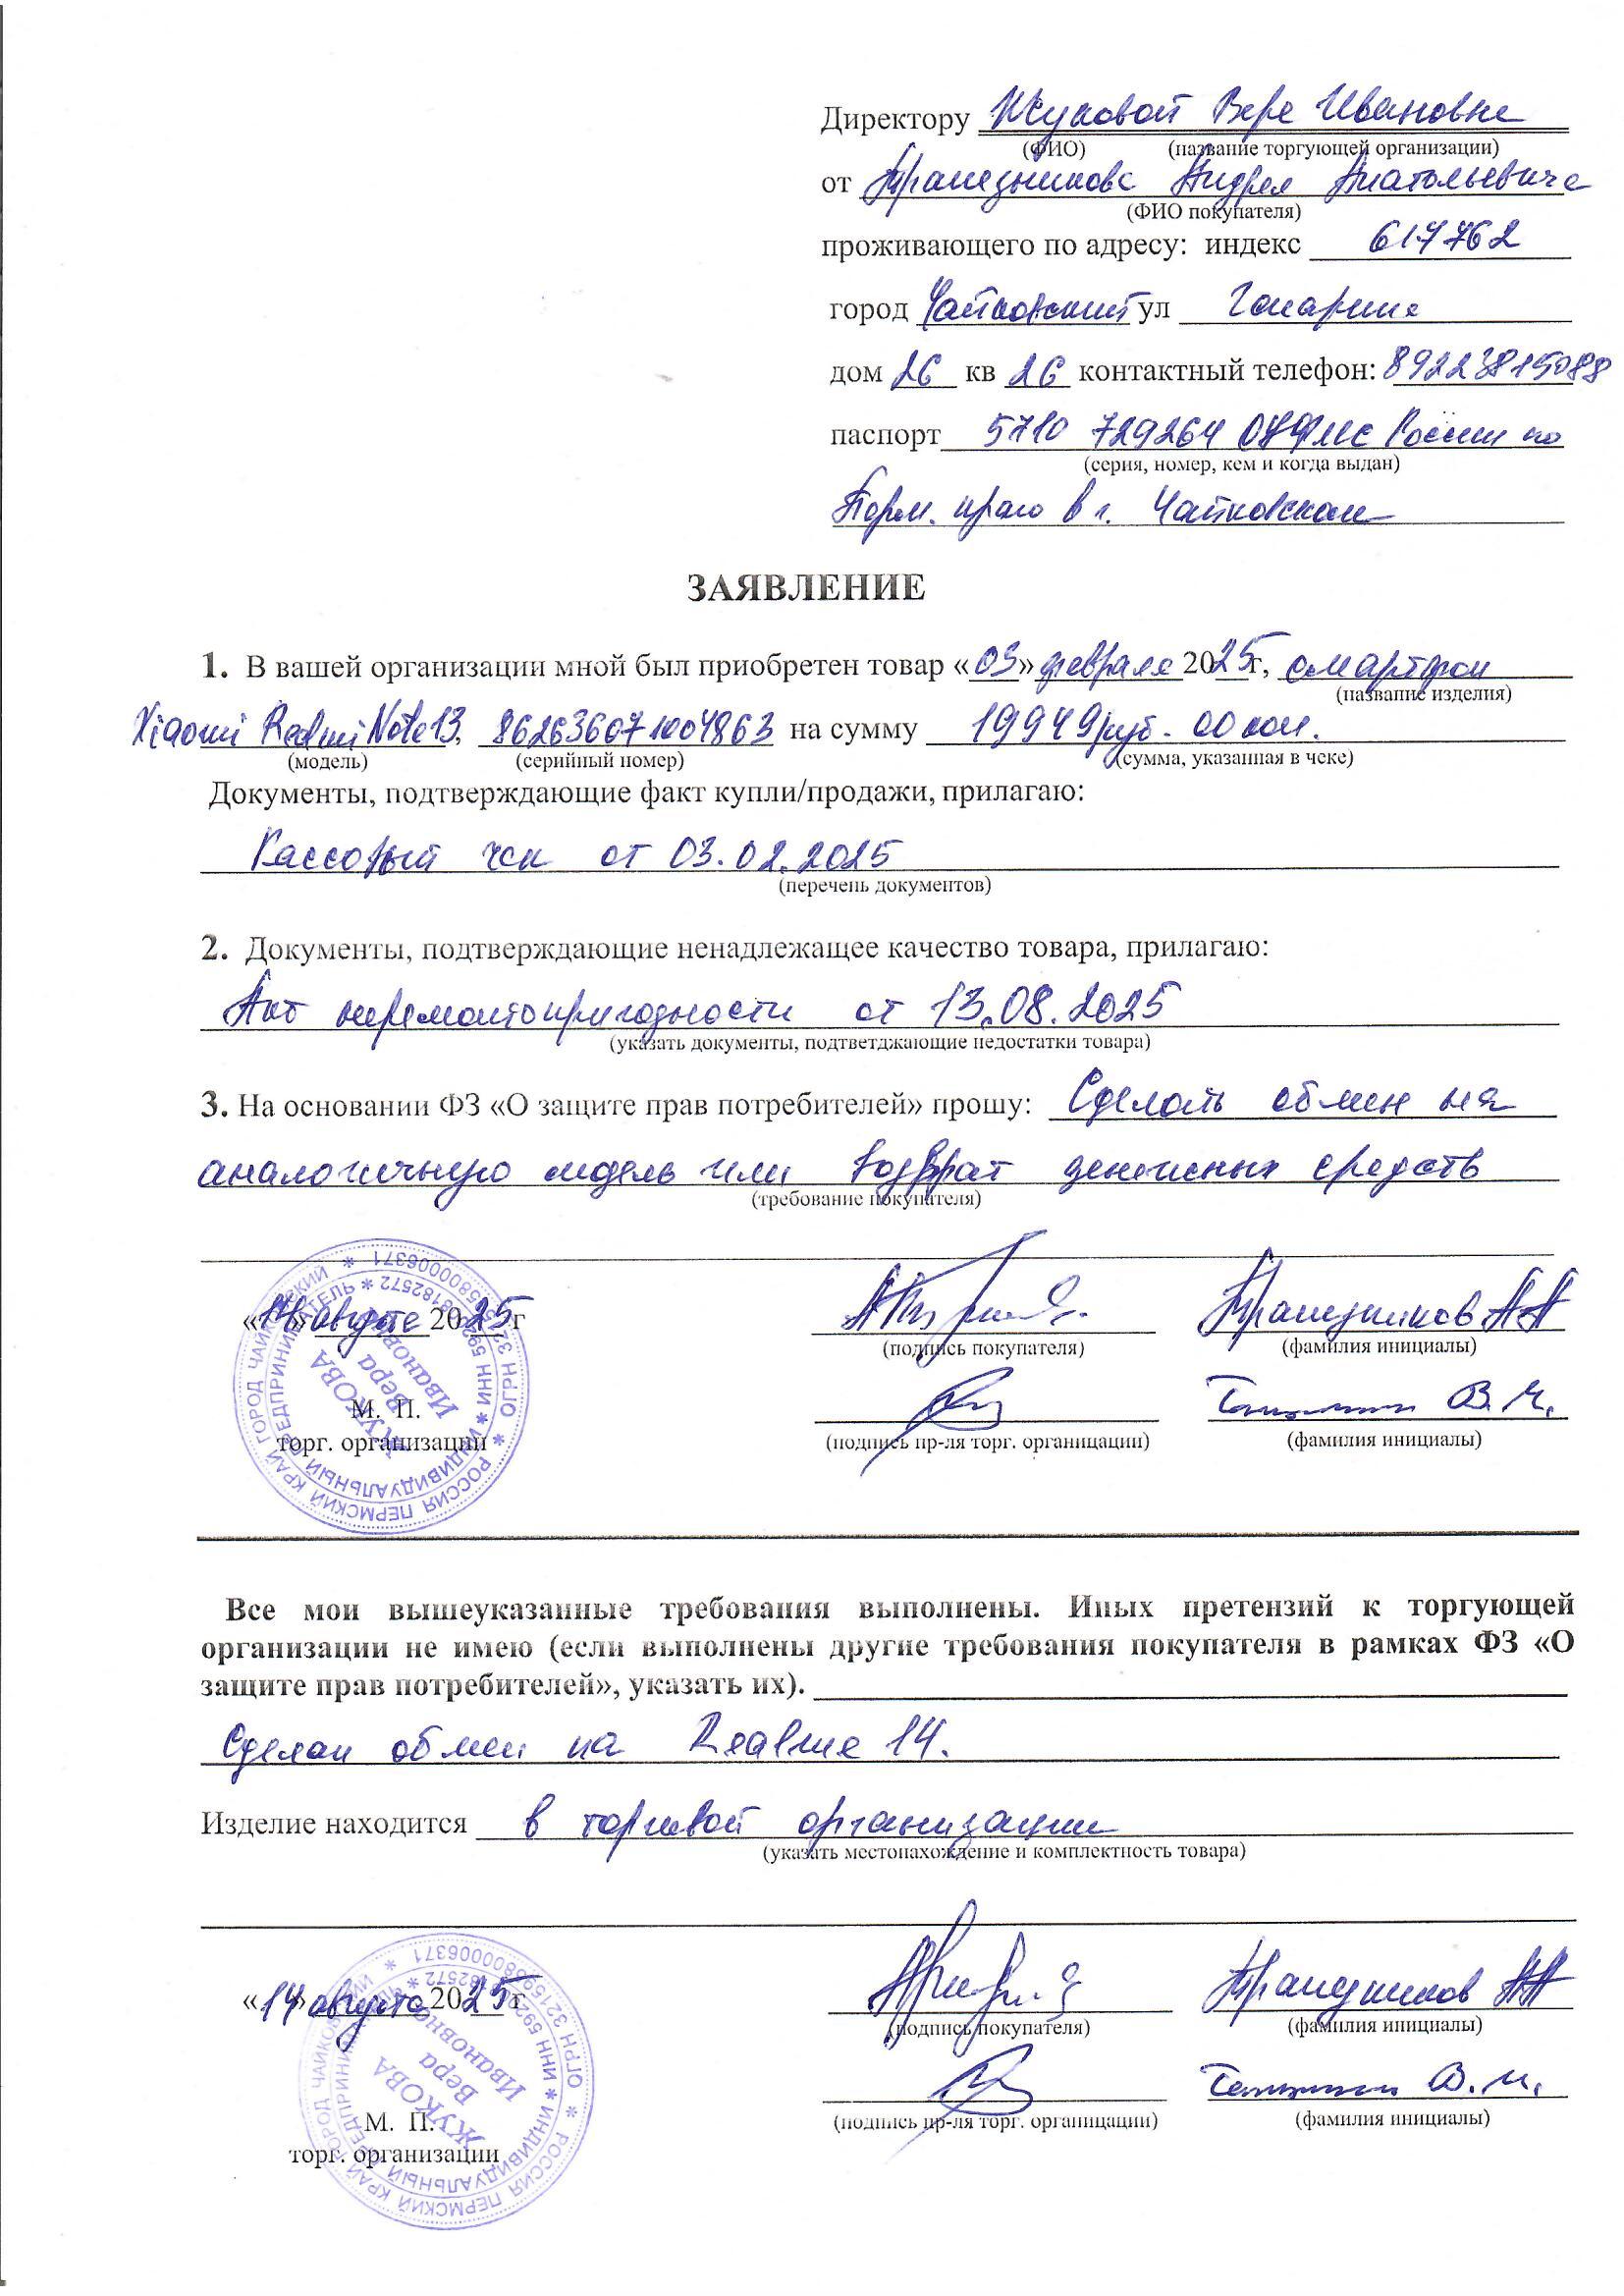 Директору Жуковой Вере Ивановне
(ФИО) (название торгующей организации)
от Трапезникова Андрея Анатольевича
(ФИО покупателя)
проживающего по адресу: индекс 617762
город Чайковский ул Гагарина
дом 26 кв 26 контактный телефон: 89223815088
паспорт 5710 729264 ОУФМС России по
(серия, номер, кем и когда выдан)
Перм. краю в г. Чайковском
ЗАЯВЛЕНИЕ
1. В вашей организации мной был приобретен товар «03» февраля 2025г, смартфон
(название изделия)
Xiaomi Redmi Note 13, 862636071004863 на сумму 19949 руб. 00 коп.
(модель) (серийный номер) (сумма, указанная в чеке)
Документы, подтверждающие факт купли/продажи, прилагаю:
Кассовый чек от 03.02.2025
(перечень документов)
2. Документы, подтверждающие ненадлежащее качество товара, прилагаю:
Акт неремонтопригодности от 13.08.2025
(указать документы, подтветджающие недостатки товара)
3. На основании ФЗ «О защите прав потребителей» прошу: Сделать обмен на
аналогичную модель или возврат денежных средств
(требование покупателя)
«14» августа 2025г Трапезников АА
(подпись покупателя) (фамилия инициалы)
М. П.
торг. организации
(подпись пр-ля торг. органицации) (фамилия инициалы)
РОССИЯ ПЕРМСКИЙ КРАЙ ГОРОД ЧАЙКОВСКИЙ
ИНДИВИДУАЛЬНЫЙ ПРЕДПРИНИМАТЕЛЬ
ЖУКОВА
Вера
Ивановна
Все мои вышеуказанные требования выполнены. Иных претензий к торгующей
организации не имею (если выполнены другие требования покупателя в рамках ФЗ «О
защите прав потребителей», указать их).
Сделан обмен на Realme 14.
Изделие находится в торговой организации
(указать местонахождение и комплектность товара)
«14» августа 2025 г Трапезников АА
(подпись покупателя) (фамилия инициалы)
М. П.
торг. организации
(подпись пр-ля торг. органицации) (фамилия инициалы)
РОССИЯ ПЕРМСКИЙ КРАЙ ГОРОД ЧАЙКОВСКИЙ
ИНДИВИДУАЛЬНЫЙ ПРЕДПРИНИМАТЕЛЬ
ЖУКОВА
Вера
Ивановна